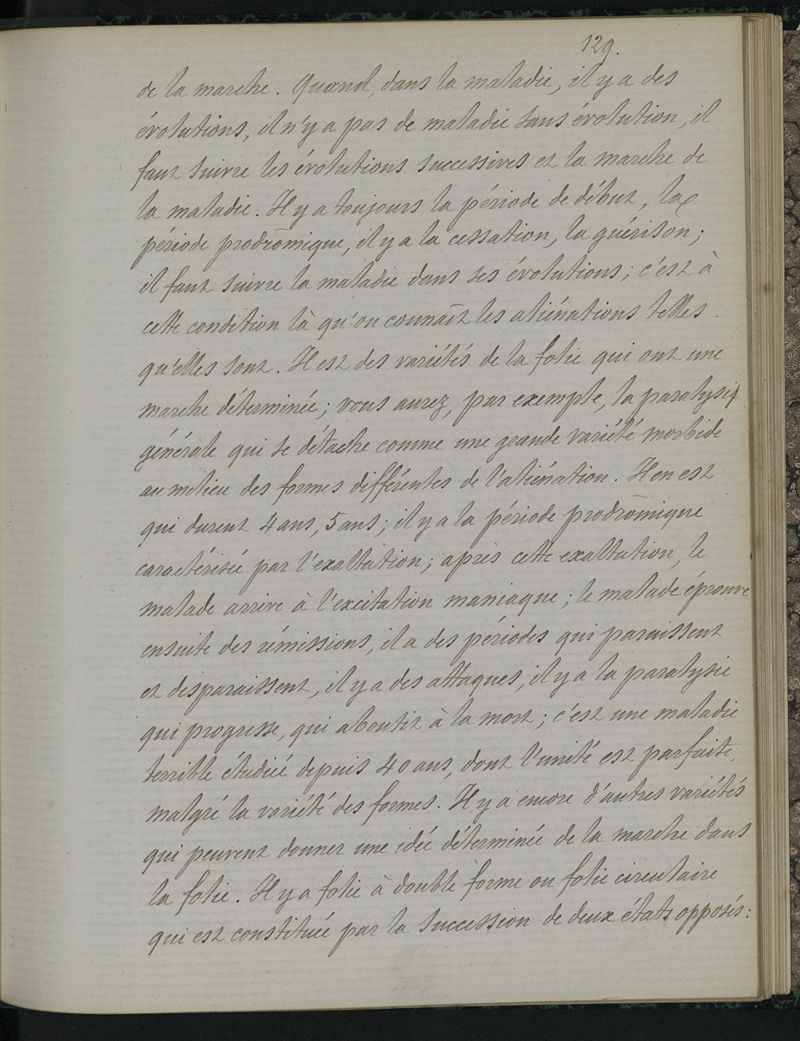 129.
de la marche. Quand, dans la maladie, il y a des
évolutions, il n'y a pas de maladie sans évolution, il
faut suivre les évolutions successives et la marche de
la maladie. Il y a toujours la période de début, la
période prodrômique, il y a la cessation, la guérison;
il faut suivre la maladie dans ses évolutions; c'est à
cette condition là qu'on connaît les aliénations telles
qu'elles sont. Il est des variétés de la folie qui ont une
marche déterminée; vous aurez, par exemple, la paralysie
générale qui se détache comme une grande variété morbide
au milieu des formes différentes de l'aliénation. Il en est
qui durent 4 ans, 5 ans; il y a la période prodrômique
caractérisée par l'exaltation; après cette exaltation, le
malade arrive à l'excitation maniaque; le malade éprouve
ensuite des rémissions, il a des périodes qui paraissent
et disparaissent, il y a des attaques, il y a la paralysie
qui progresse, qui aboutit à la mort; c'est une maladie
terrible étudiée depuis 40 ans, dont l'unité est parfaite,
malgré la variété des formes. Il y a encore d'autres variétés
qui peuvent donner une idée déterminée de la marche dans
la folie. Il y a folie à double forme ou folie circulaire
qui est constituée par la succession de deux états opposés: